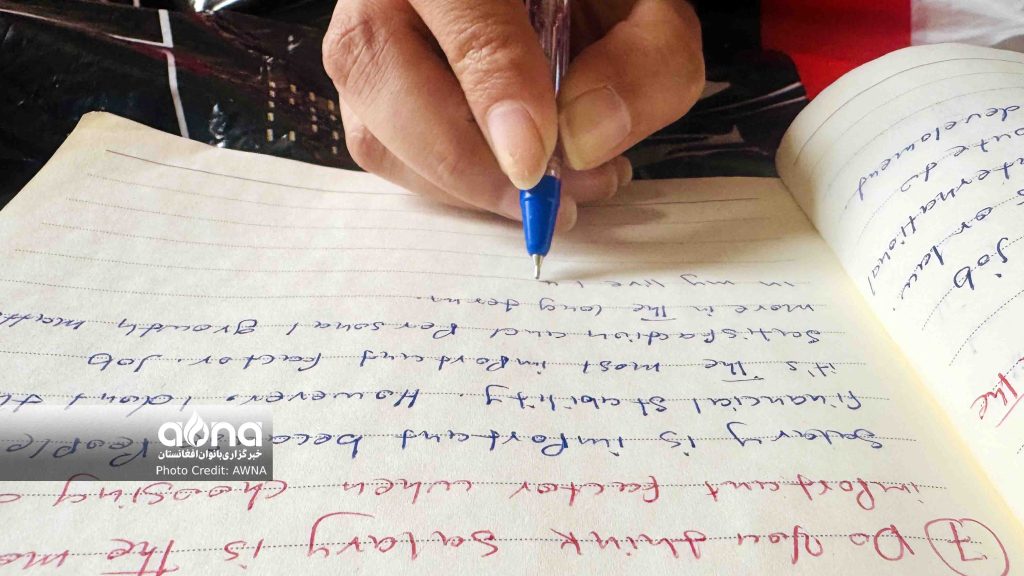 7 Do you think salary is The mo
important factor when choosing a
Salary is important because People
financial stability. However, I don't th
it's The most important factor. Job
satisfaction and Personal growth matt
more in The long term.
in my live
The
job
or law
international
develoment
awna
خبرگزاری بانوان افغانستان
Photo Credit: AWNA